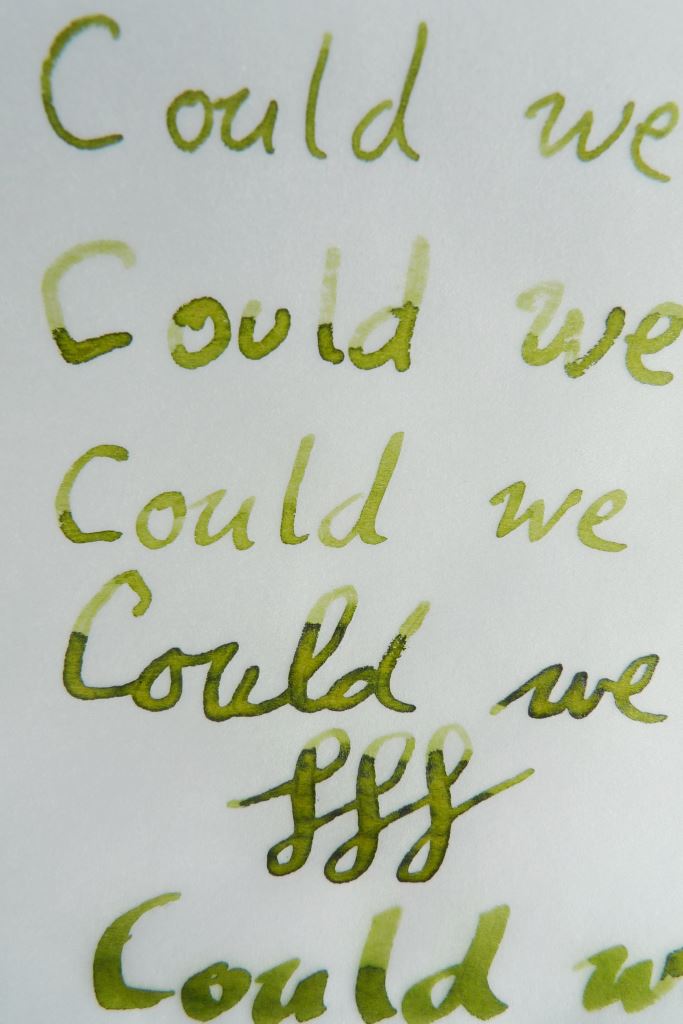 Could we
Could we
Could we
Could we
fff
Could w